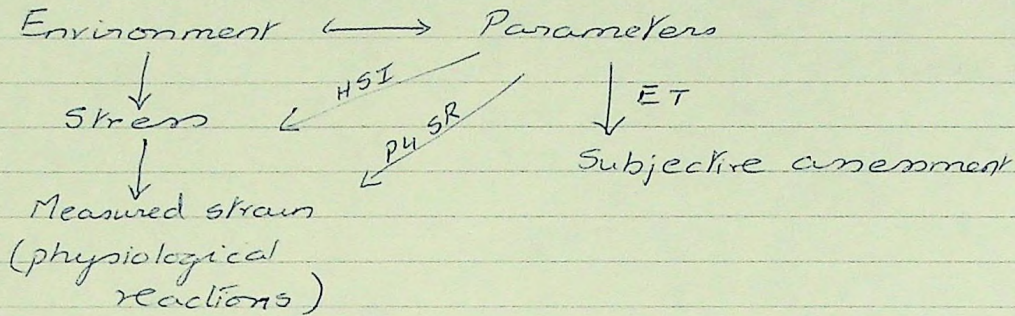 Environment ⟷ Parameters
HSI
ET
Stress
P4 SR
Subjective assessment
Measured strain
(physiological
reactions)